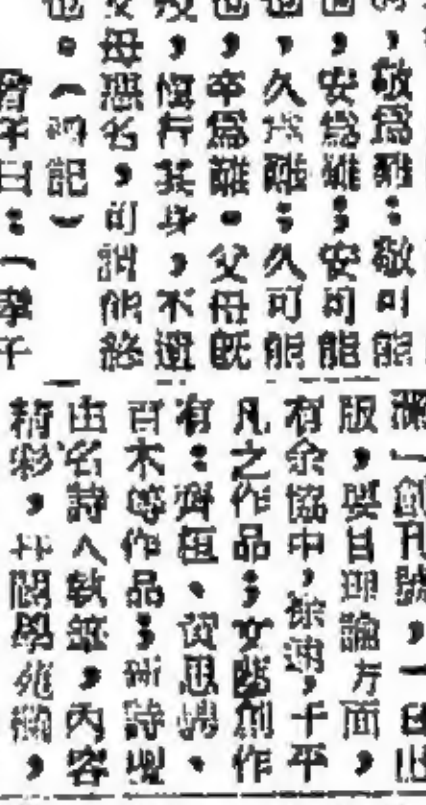 敬爲難；敬可能
也，安爲難；安可能
也，久爲難；久可能
也，卒爲難。父母既
歿，慎行其身，不遺
父母惡名，可謂能終
也。（禮記）
曾子曰：「孝子
創刊號，一日出
版，要目理論方面，
有余協中，徐速，千平
凡之作品；文藝創作
有：齊桓、黃思騁、
百木等作品；新詩
由名詩人執筆，內容
精彩，并闢學苑欄，